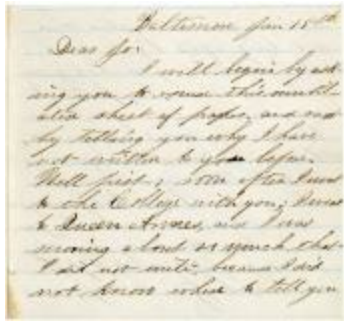 Baltimore Jan 15th
Dear Jo:
I will begin by ask-
ing you to excuse this mutil-
ated sheet of paper, and next
by telling you why I have
not written to you before.
Well first; soon after I was
to the College with you; I went
to Queen Annes, and I was
moving about so much that
I did not write, because I did
not know where to tell you